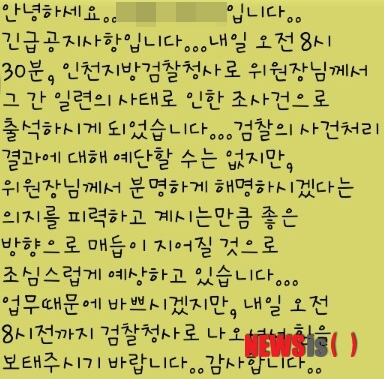 안녕하세요..            입니다..
긴급공지사항입니다...내일 오전8시
30분, 인천지방검찰청사로 위원장님께서
그 간 일련의 사태로 인한 조사건으로
출석하시게 되었습니다...검찰의 사건처리
결과에 대해 예단할 수는 없지만,
위원장님께서 분명하게 해명하시겠다는
의지를 피력하고 계시는만큼 좋은
방향으로 매듭이 지어질 것으로
조심스럽게 예상하고 있습니다...
업무때문에 바쁘시겠지만, 내일 오전
8시전까지 검찰청사로 나오셔서 힘을
보태주시기 바랍니다..감사합니다..
NEWSis( )